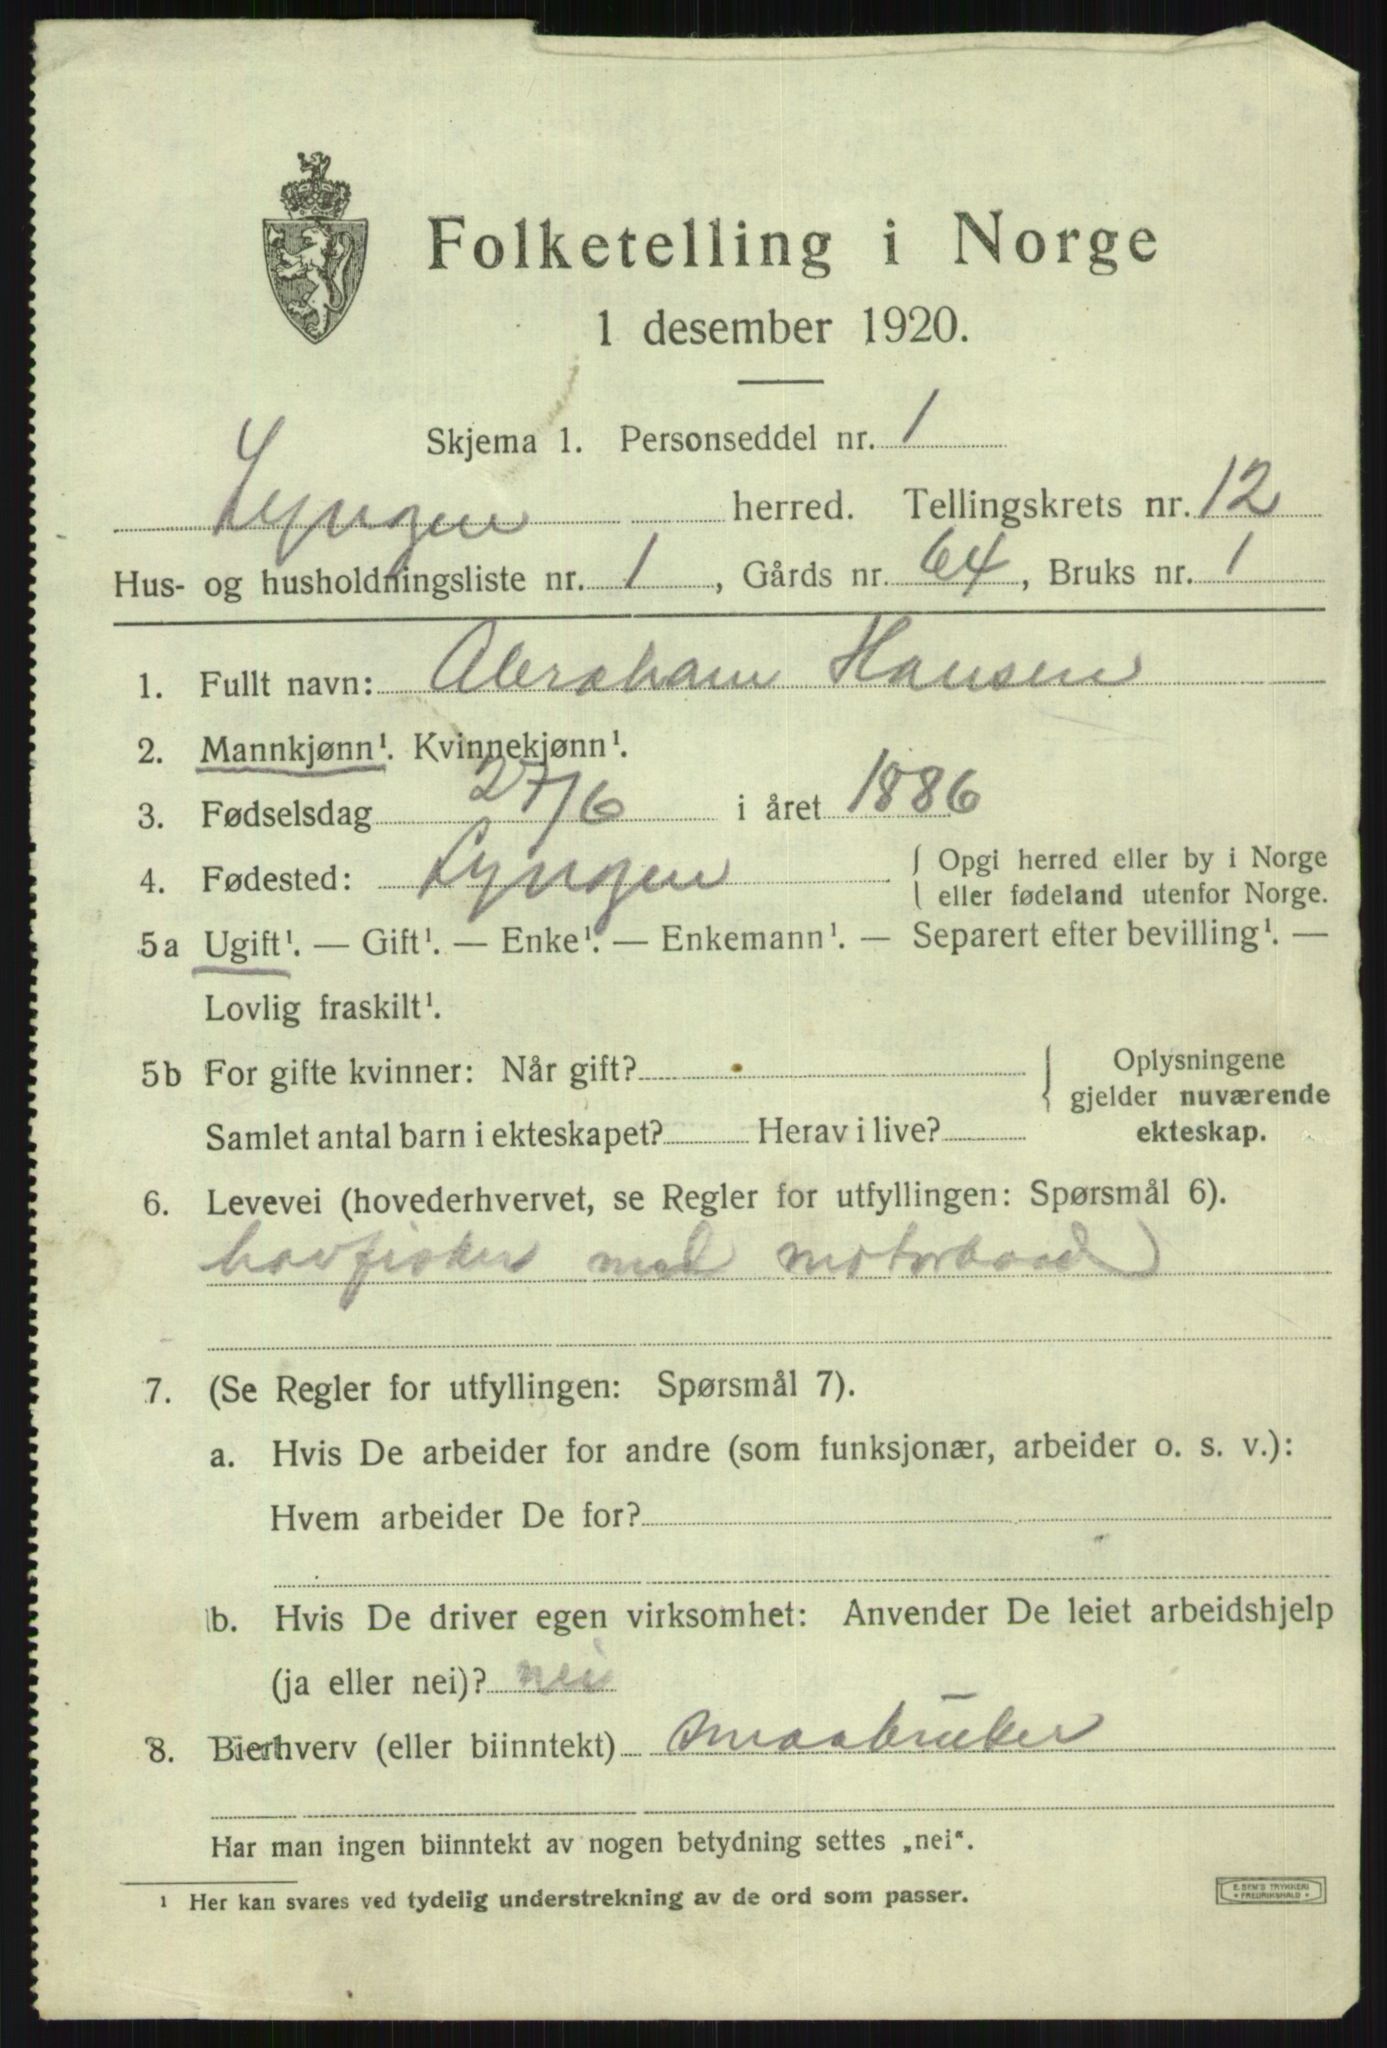 Folketelling i Norge
1 desember 1920.
Skjema 1. Personseddel nr. 1
Lyngen herred. Tellingskrets nr. 12
Hus- og husholdningsliste nr. 1, Gårds nr. 64, Bruks nr. 1
1. Fullt navn: Abraham Hansen
2. Mannkjønn¹. Kvinnekjønn¹.
3. Fødselsdag 27/6 i året 1886
4. Fødested: Lyngen { Opgi herred eller by i Norge
eller fødeland utenfor Norge.
5a Ugift¹. — Gift¹. — Enke¹. — Enkemann¹. — Separert efter bevilling¹. —
Lovlig fraskilt¹.
5b For gifte kvinner: Når gift?
Samlet antal barn i ekteskapet? Herav i live?
{ Oplysningene
gjelder nuværende
ekteskap.
6. Levevei (hovederhvervet, se Regler for utfyllingen: Spørsmål 6).
havfisker med motorbaad
7. (Se Regler for utfyllingen: Spørsmål 7).
a. Hvis De arbeider for andre (som funksjonær, arbeider o. s. v.):
Hvem arbeider De for?
b. Hvis De driver egen virksomhet: Anvender De leiet arbeidshjelp
(ja eller nei)? nei
8. Bierhverv (eller biinntekt) smaabruker
Har man ingen biinntekt av nogen betydning settes „nei“.
¹ Her kan svares ved tydelig understrekning av de ord som passer.
E. SEM'S TRYKKERI
• FREDRIKSHALD •